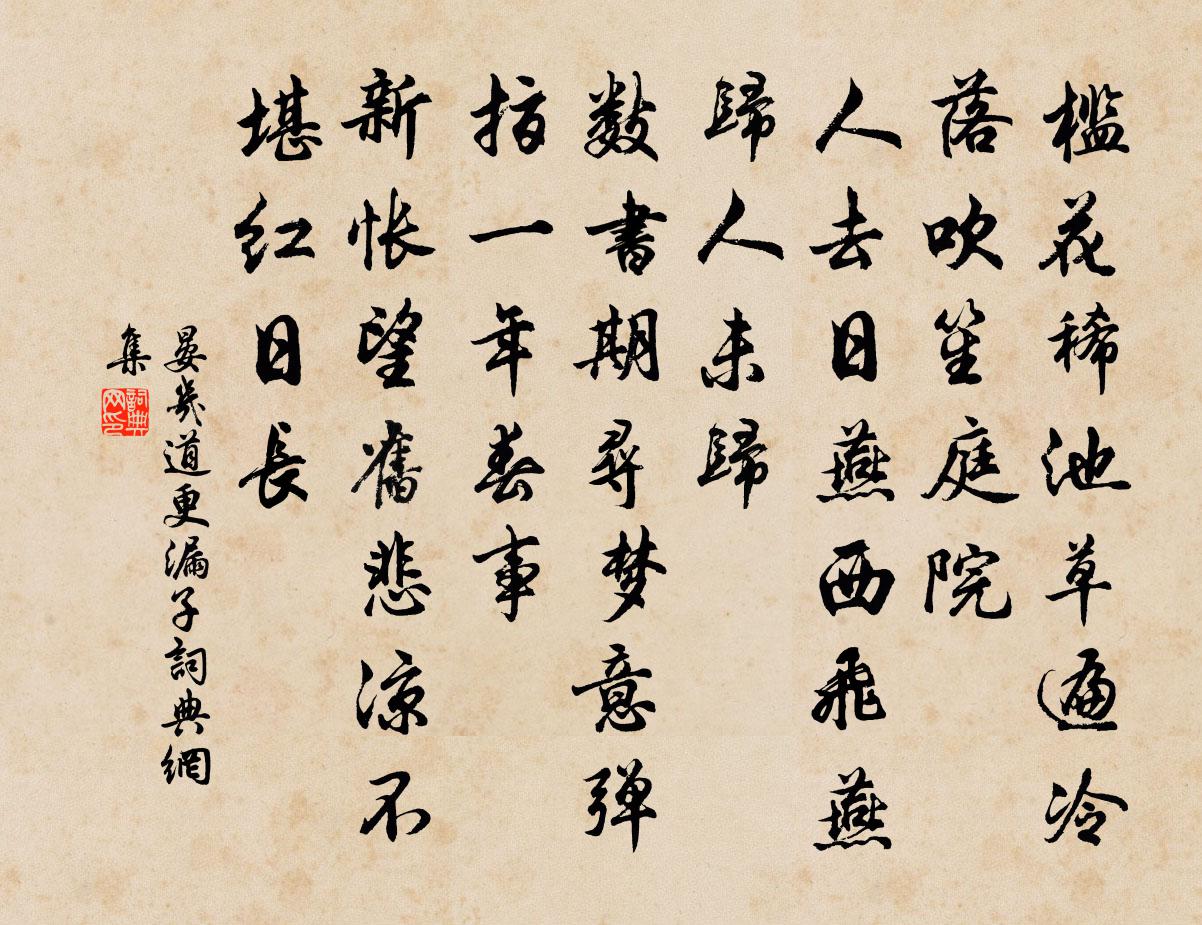 檻花稀池草遍冷
落吹笙庭院
人去日燕西飛燕
歸人未歸
數書期尋梦意弹
指一年春事
新悵望舊悲凉不
堪红日長
晏幾道更漏子詞典網
集
詞典
网印